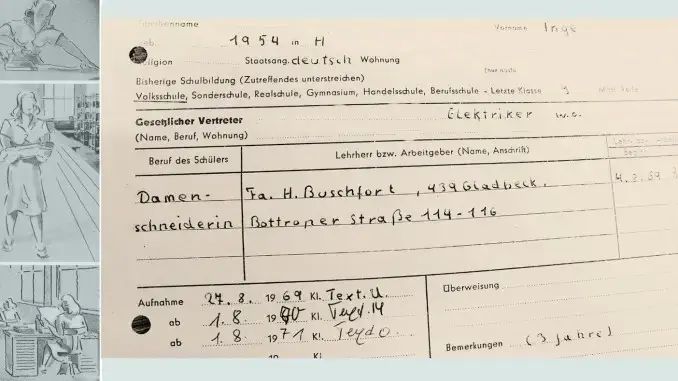 Familienname Vorname Inge
geb. 1954 in H
Religion Staatsang. deutsch Wohnung
Bisherige Schulbildung (Zutreffendes unterstreichen)
Volksschule, Sonderschule, Realschule, Gymnasium, Handelsschule, Berufsschule - Letzte Klasse 9
Gesetzlicher Vertreter Elektriker w.o.
(Name, Beruf, Wohnung)
Beruf des Schülers Lehrherr bzw. Arbeitgeber (Name, Anschrift)
Damen- Fa. H. Buschfort, 439 Gladbeck.
schneiderin Bottroper Straße 114-116
Überweisung
Aufnahme 27. 8. 1969 Kl. Text. U.
ab 1. 8. 1970 Kl. Teyd. M
ab 1. 8. 1971 Kl. Teydo.
Bemerkungen (3 Jahre)
Kl.